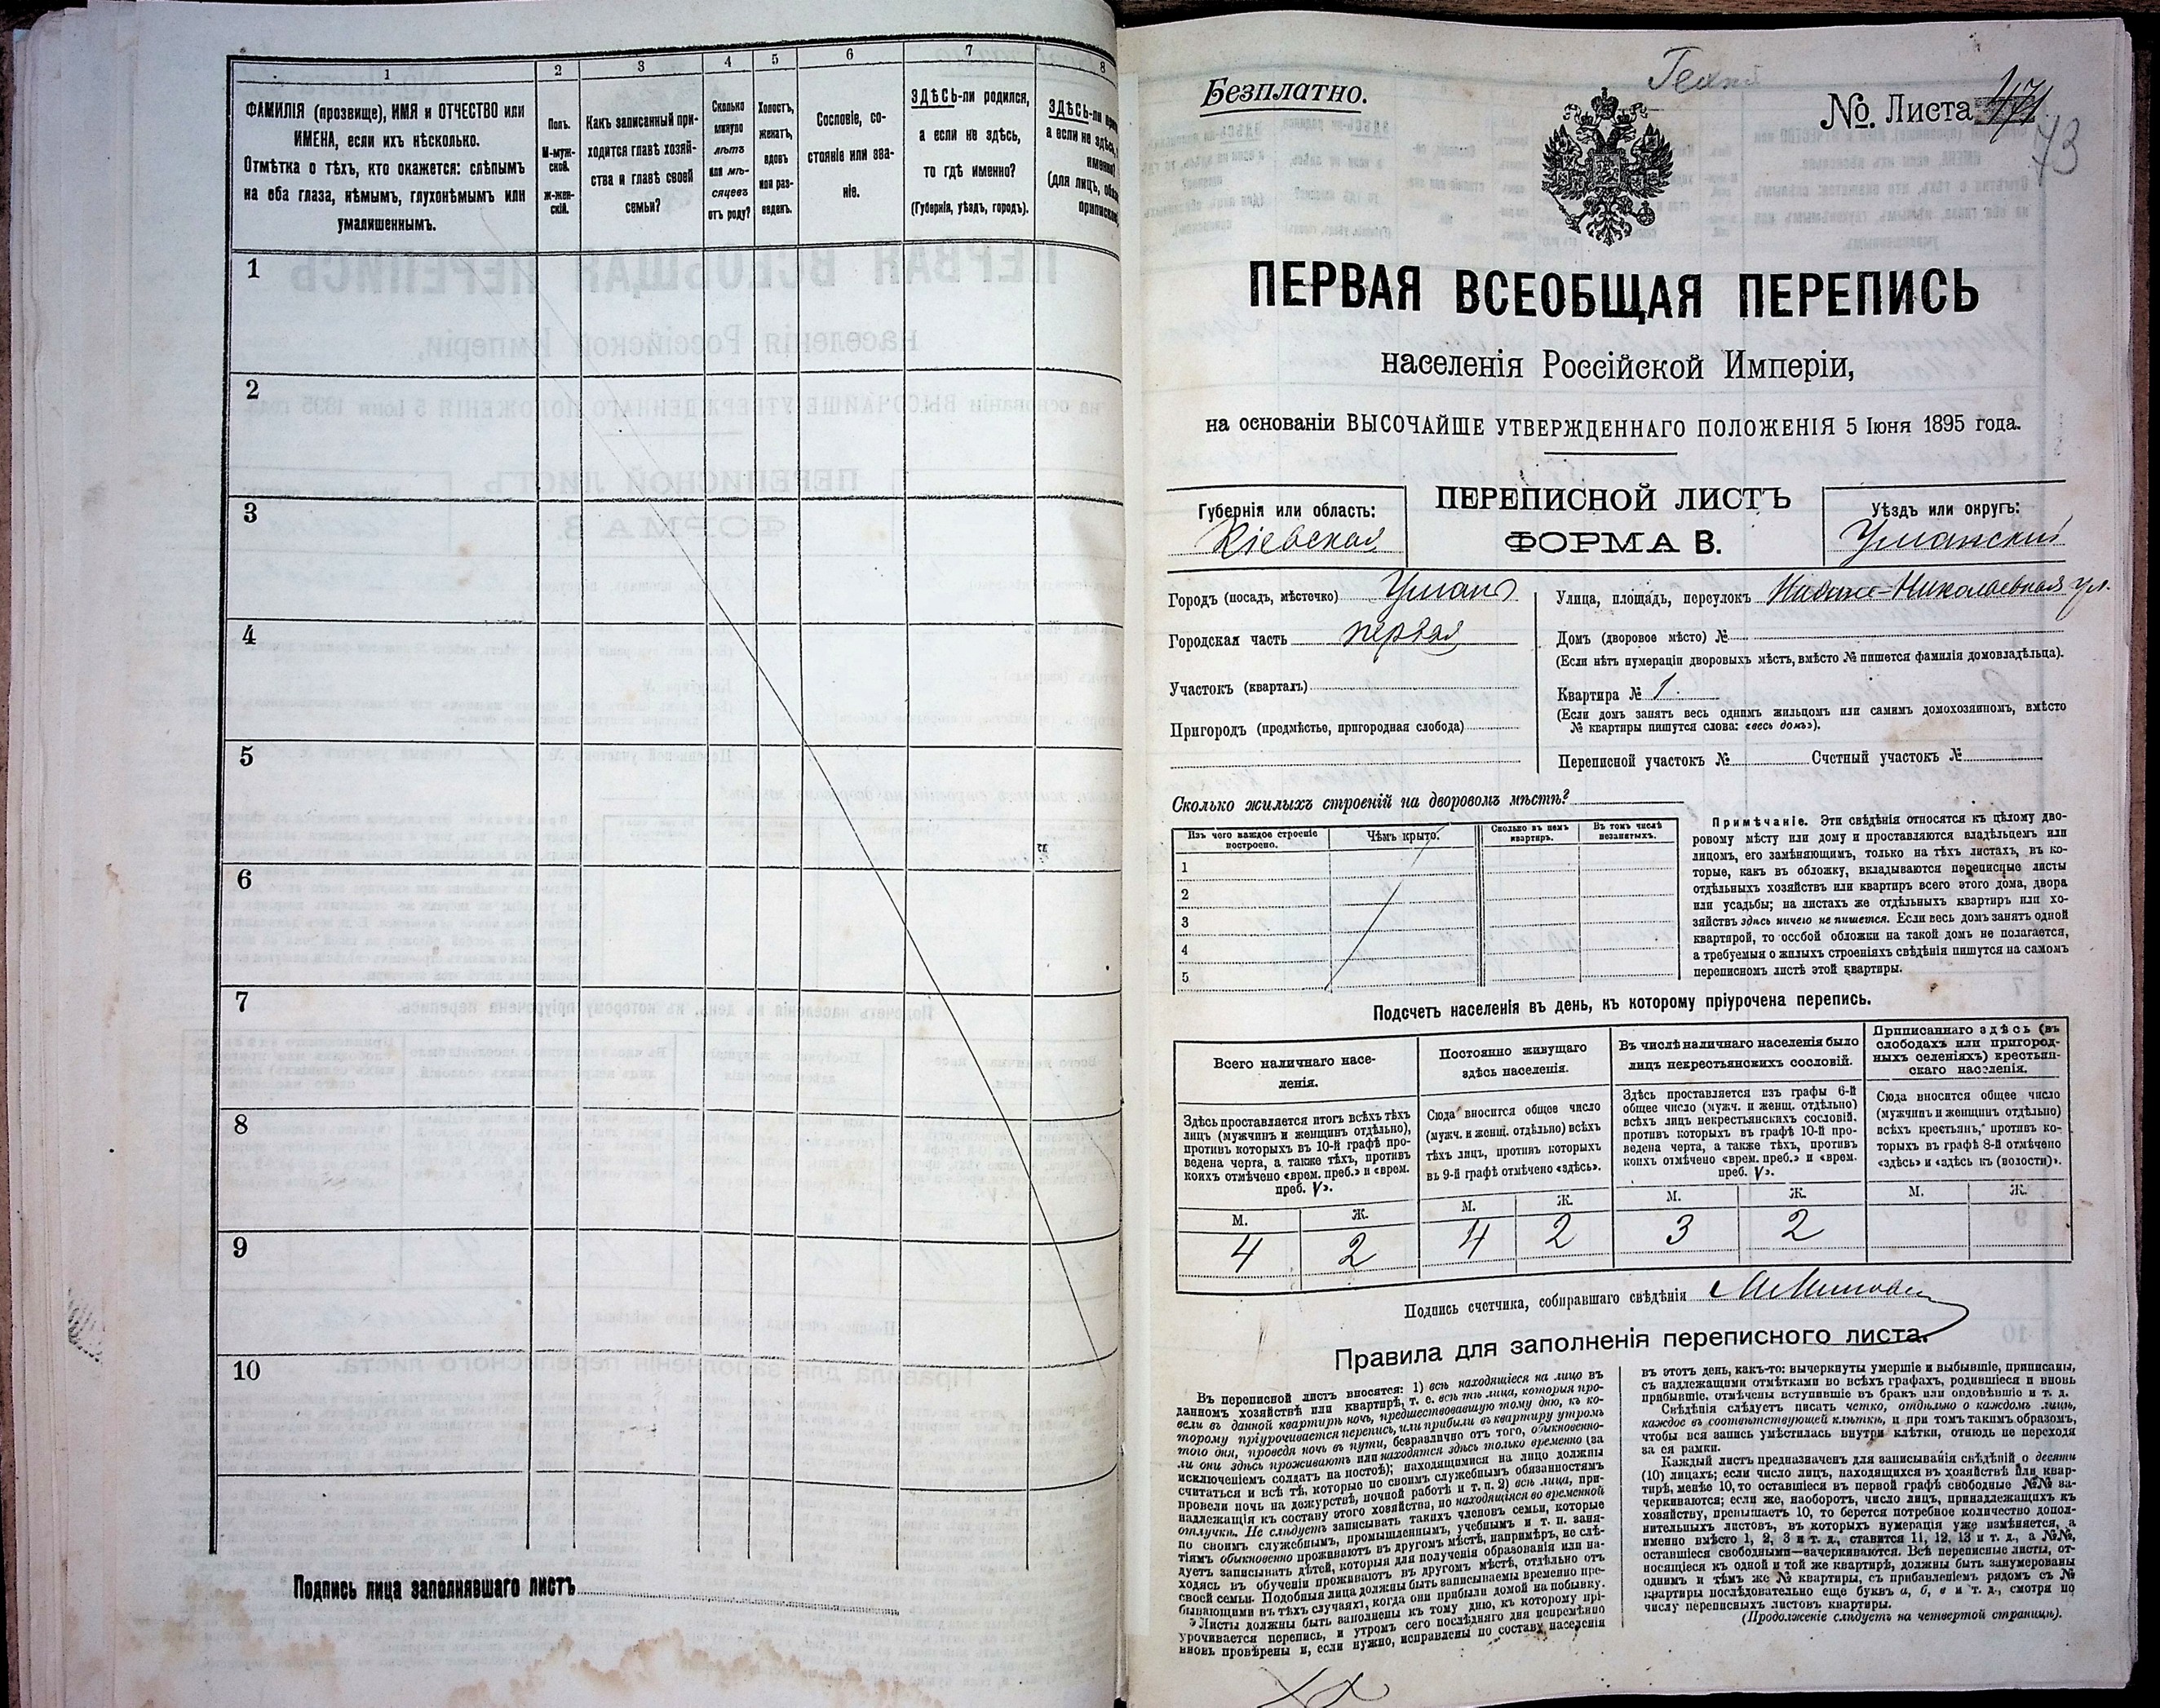 1
2
3
4
5
6
7
8
ФАМИЛІЯ (прозвище), ИМЯ и ОТЧЕСТВО или
ИМЕНА, если ихъ нѣсколько.
Отмѣтка о тѣхъ, кто окажется: слѣпымъ
на оба глаза, нѣмымъ, глухонѣмымъ или
умалишеннымъ.
Полъ.
М-муж-
ской.
Ж-жен-
скій.
Какъ записанный при-
ходится главѣ хозяй-
ства и главѣ своей
семьи?
Сколько
минуло
лѣтъ
или мѣ-
сяцевъ
отъ роду?
Холостъ,
женатъ,
вдовъ
или раз-
веденъ.
Сословіе, со-
стояніе или зва-
ніе.
ЗДѢСЬ-ли родился,
а если не здѣсь,
то гдѣ именно?
(Губернія, уѣздъ, городъ).
ЗДѢСЬ-ли
а если не здѣсь,
именно?
(для лицъ,
1
2
3
4
5
6
7
8
9
10
Подпись лица заполнявшаго листъ
Безплатно.
No. Листа
73
ПЕРВАЯ ВСЕОБЩАЯ ПЕРЕПИСЬ
населенія Россійской Имперіи,
на основаніи ВЫСОЧАЙШЕ УТВЕРЖДЕННАГО ПОЛОЖЕНІЯ 5 Іюня 1895 года.
Губернія или область:
Кіевская
ПЕРЕПИСНОЙ ЛИСТЪ
ФОРМА В.
Уѣздъ или округъ:
Уманскій
Городъ (посадъ, мѣстечко) Умань
Городская часть первая
Участокъ (кварталъ)
Пригородъ (предмѣстье, пригородная слобода)
Улица, площадь, переулокъ Нижне-Николаевская ул.
Домъ (дворовое мѣсто) №
(Если нѣтъ нумераціи дворовыхъ мѣстъ, вмѣсто № пишется фамилія домовладѣльца).
Квартира № 1.
(Если домъ занятъ весь однимъ жильцомъ или самимъ домохозяиномъ, вмѣсто
№ квартиры пишутся слова: «весь домъ»).
Переписной участокъ № Счетный участокъ №
Сколько жилыхъ строеній на дворовомъ мѣстѣ?
Изъ чего каждое строеніе
построено.
Чѣмъ крыто.
Сколько въ немъ
квартиръ.
Въ томъ числѣ
незанятыхъ.
1
2
3
4
5
Примѣчаніе. Эти свѣдѣнія относятся къ цѣлому дво-
ровому мѣсту или дому и проставляются владѣльцемъ или
лицомъ, его замѣняющимъ, только на тѣхъ листахъ, въ ко-
торые, какъ въ обложку, вкладываются переписные листы
отдѣльныхъ хозяйствъ или квартиръ всего этого дома, двора
или усадьбы; на листахъ же отдѣльныхъ квартиръ или хо-
зяйствъ здѣсь ничего не пишется. Если весь домъ занятъ одной
квартирой, то особой обложки на такой домъ не полагается,
а требуемыя о жилыхъ строеніяхъ свѣдѣнія пишутся на самомъ
переписномъ листѣ этой квартиры.
Подсчетъ населенія въ день, къ которому пріурочена перепись.
Всего наличнаго насе-
ленія.
Постоянно живущаго
здѣсь населенія.
Въ числѣ наличнаго населенія было
лицъ некрестьянскихъ сословій.
Приписаннаго здѣсь (въ
слободахъ или пригород-
ныхъ селеніяхъ) крестьян-
скаго населенія.
Здѣсь проставляется итогъ всѣхъ тѣхъ
лицъ (мужчинъ и женщинъ отдѣльно),
противъ которыхъ въ 10-й графѣ про-
ведена черта, а также тѣхъ, противъ
коихъ отмѣчено «врем. преб.» и «врем.
преб. V».
Сюда вносится общее число
(мужч. и женщ. отдѣльно) всѣхъ
тѣхъ лицъ, противъ которыхъ
въ 9-й графѣ отмѣчено «здѣсь».
Здѣсь проставляется изъ графы 6-й
общее число (мужч. и женщ. отдѣльно)
всѣхъ лицъ некрестьянскихъ сословій,
противъ которыхъ въ графѣ 10-й про-
ведена черта, а также тѣхъ, противъ
коихъ отмѣчено «врем. преб.» и «врем.
преб. V».
Сюда вносится общее число
(мужчинъ и женщинъ отдѣльно)
всѣхъ крестьянъ, противъ ко-
торыхъ въ графѣ 8-й отмѣчено
«здѣсь» и «здѣсь къ (волости)».
М. Ж. М. Ж. М. Ж. М. Ж.
4 2 4 2 3 2
Подпись счетчика, собиравшаго свѣдѣнія
Правила для заполненія переписного листа.
Въ переписной листъ вносятся: 1) всѣ находящіеся на лицо въ
данномъ хозяйствѣ или квартирѣ, т. е. всѣ тѣ лица, которыя про-
вели въ данной квартирѣ ночь, предшествовавшую тому дню, къ ко-
торому пріурочивается перепись, или прибыли въ квартиру утромъ
того дня, проведя ночь въ пути, безразлично отъ того, обыкновенно-
ли они здѣсь проживаютъ или находятся здѣсь только временно (за
исключеніемъ солдатъ на постоѣ); находящимися на лицо должны
считаться и всѣ тѣ, которые по своимъ служебнымъ обязанностямъ
провели ночь на дежурствѣ, ночной работѣ и т. п. 2) всѣ лица, при-
надлежащія къ составу этого хозяйства, но находящіяся во временной
отлучкѣ. Не слѣдуетъ записывать такихъ членовъ семьи, которые
по своимъ служебнымъ, промышленнымъ, учебнымъ и т. п. заня-
тіямъ обыкновенно проживаютъ въ другомъ мѣстѣ, напримѣръ, не слѣ-
дуетъ записывать дѣтей, которыя для полученія образованія или на-
ходясь въ обученіи проживаютъ въ другомъ мѣстѣ, отдѣльно отъ
своей семьи. Подобныя лица должны быть записываемы временно пре-
бывающими въ тѣхъ случаяхъ, когда они прибыли домой на побывку.
Листы должны быть заполнены къ тому дню, къ которому прі-
урочивается перепись, и утромъ сего послѣдняго дня непремѣнно
вновь провѣрены и, если нужно, исправлены по составу населенія
въ этотъ день, какъ-то: вычеркнуты умершіе и выбывшіе, приписаны,
съ надлежащими отмѣтками во всѣхъ графахъ, родившіеся и вновь
прибывшіе, отмѣчены вступившіе въ бракъ или овдовѣвшіе и т. д.
Свѣдѣнія слѣдуетъ писать четко, отдѣльно о каждомъ лицѣ,
каждое въ соотвѣтствующей клѣткѣ, и при томъ такимъ образомъ,
чтобы вся запись умѣстилась внутри клѣтки, отнюдь не переходя
за ея рамки.
Каждый листъ предназначенъ для записыванія свѣдѣній о десяти
(10) лицахъ; если число лицъ, находящихся въ хозяйствѣ или квар-
тирѣ, менѣе 10, то оставшіеся въ первой графѣ свободные №№ за-
черкиваются; если же, наоборотъ, число лицъ, принадлежащихъ къ
хозяйству, превышаетъ 10, то берется потребное количество допол-
нительныхъ листовъ, въ которыхъ нумерація уже измѣняется, а
именно вмѣсто 1, 2, 3 и т. д., ставится 11, 12, 13 и т. д., а №№,
оставшіеся свободными—зачеркиваются. Всѣ переписные листы, от-
носящіеся къ одной и той же квартирѣ, должны быть занумерованы
однимъ и тѣмъ же № квартиры, съ прибавленіемъ рядомъ съ №
квартиры послѣдовательно еще буквъ а, б, в и т. д., смотря по
числу переписныхъ листовъ квартиры.
(Продолженіе слѣдуетъ на четвертой страницѣ).